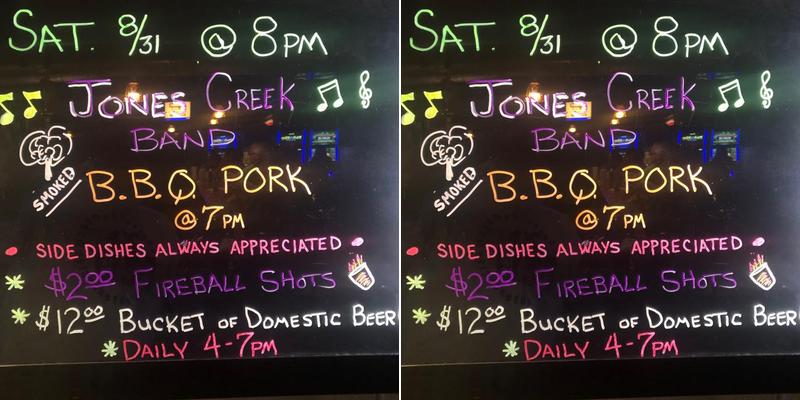 SAT. 8/31 @ 8PM
JONES CREEK
BAND
SMOKED
B.B.Q. PORK
@7PM
• SIDE DISHES ALWAYS APPRECIATED •
* $2.00 FIREBALL SHOTS
* $12.00 BUCKET OF DOMESTIC BEER
* DAILY 4-7PM
SAT. 8/31 @ 8PM
JONES CREEK
BAND
SMOKED
B.B.Q. PORK
@7PM
• SIDE DISHES ALWAYS APPRECIATED •
* $2.00 FIREBALL SHOTS
* $12.00 BUCKET OF DOMESTIC BEER
* DAILY 4-7PM